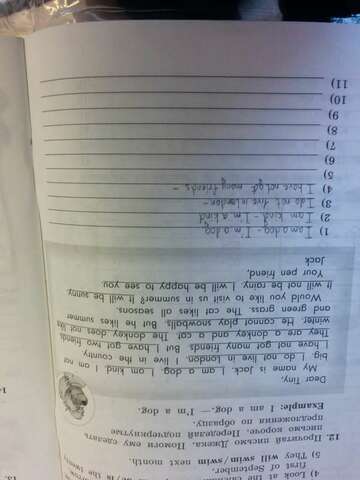 4) Look at the
first of September.
5) They will swim/swim next month.
12. Прочитай письмо Джека. Помоги ему сделать
письмо короче. Переделай подчеркнутые
предложения по образцу.
Example: I am a dog. — I'm a dog.
Dear Tiny,
My name is Jack. I am a dog. I am kind. I am not
big. I do not live in London. I live in the country
I have not got many friends. But I have got two friends.
They are a donkey and a cat. The donkey does not like
winter. He cannot play snowballs. But he likes summer
and green grass. The cat likes all seasons.
Would you like to visit us in summer? It will be sunny.
It will not be rainy. I will be happy to see you.
Your pen friend,
Jack
1) I am a dog - I'm a dog
2) I am kind - I'm a kind
3) I do not live in London -
4) I have not got many friends -
5)
6)
7)
8)
9)
10)
11)